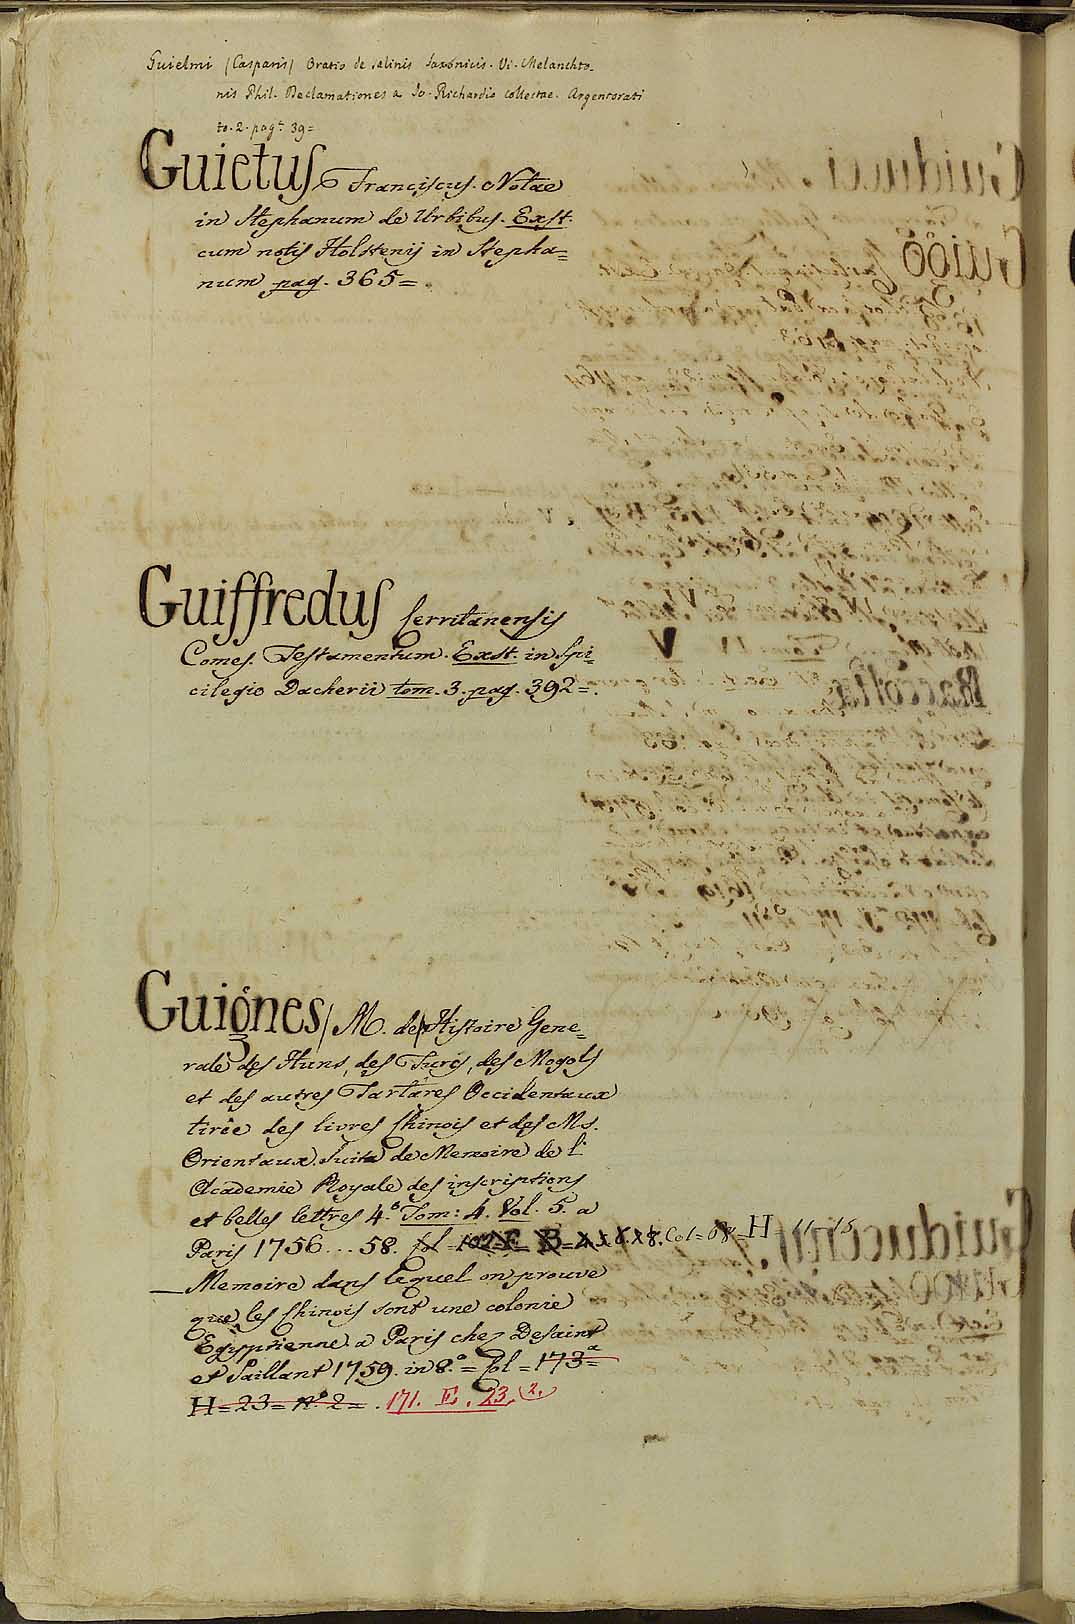 Guielmi (Casparis) Oratio de salinis Saxonicis. Vi. Melanchto-
nis Phil. Declamationes a Jo. Richardio collectae. Argentorati
to. 2. pag. 39=
Guietus Franciscus. Notae
in Stephanum de Urbibus. Exst.
cum notis Holstenij in Stepha=
num pag. 365=.
Guiffredus Cerritanensis
Comes. Testamentum. Exst. in Spi-
cilegio Dacherii tom. 3. pag. 392=.
Guignes / M. de / Histoire Gene=
rale des Huns, des Turcs, des Mogols
et des autres Tartares Occidentaux
tirée des livres Chinois et des Ms.
Orientaux. Suite de Memoire de l'
Academie Royale des inscriptions
et belles lettres 4.º Tom: 4. Vol. 5. a
Paris 1756...58. Col = 68 = H = 11-15
— Memoire dans lequel on prouve
que les Chinois sont une colonie
Egyptienne. a Paris chez Desaint
et Saillant 1759. in 8.º = Col = 173ª =
H = 23 = nº 2 = . 171. E. 23. 2.